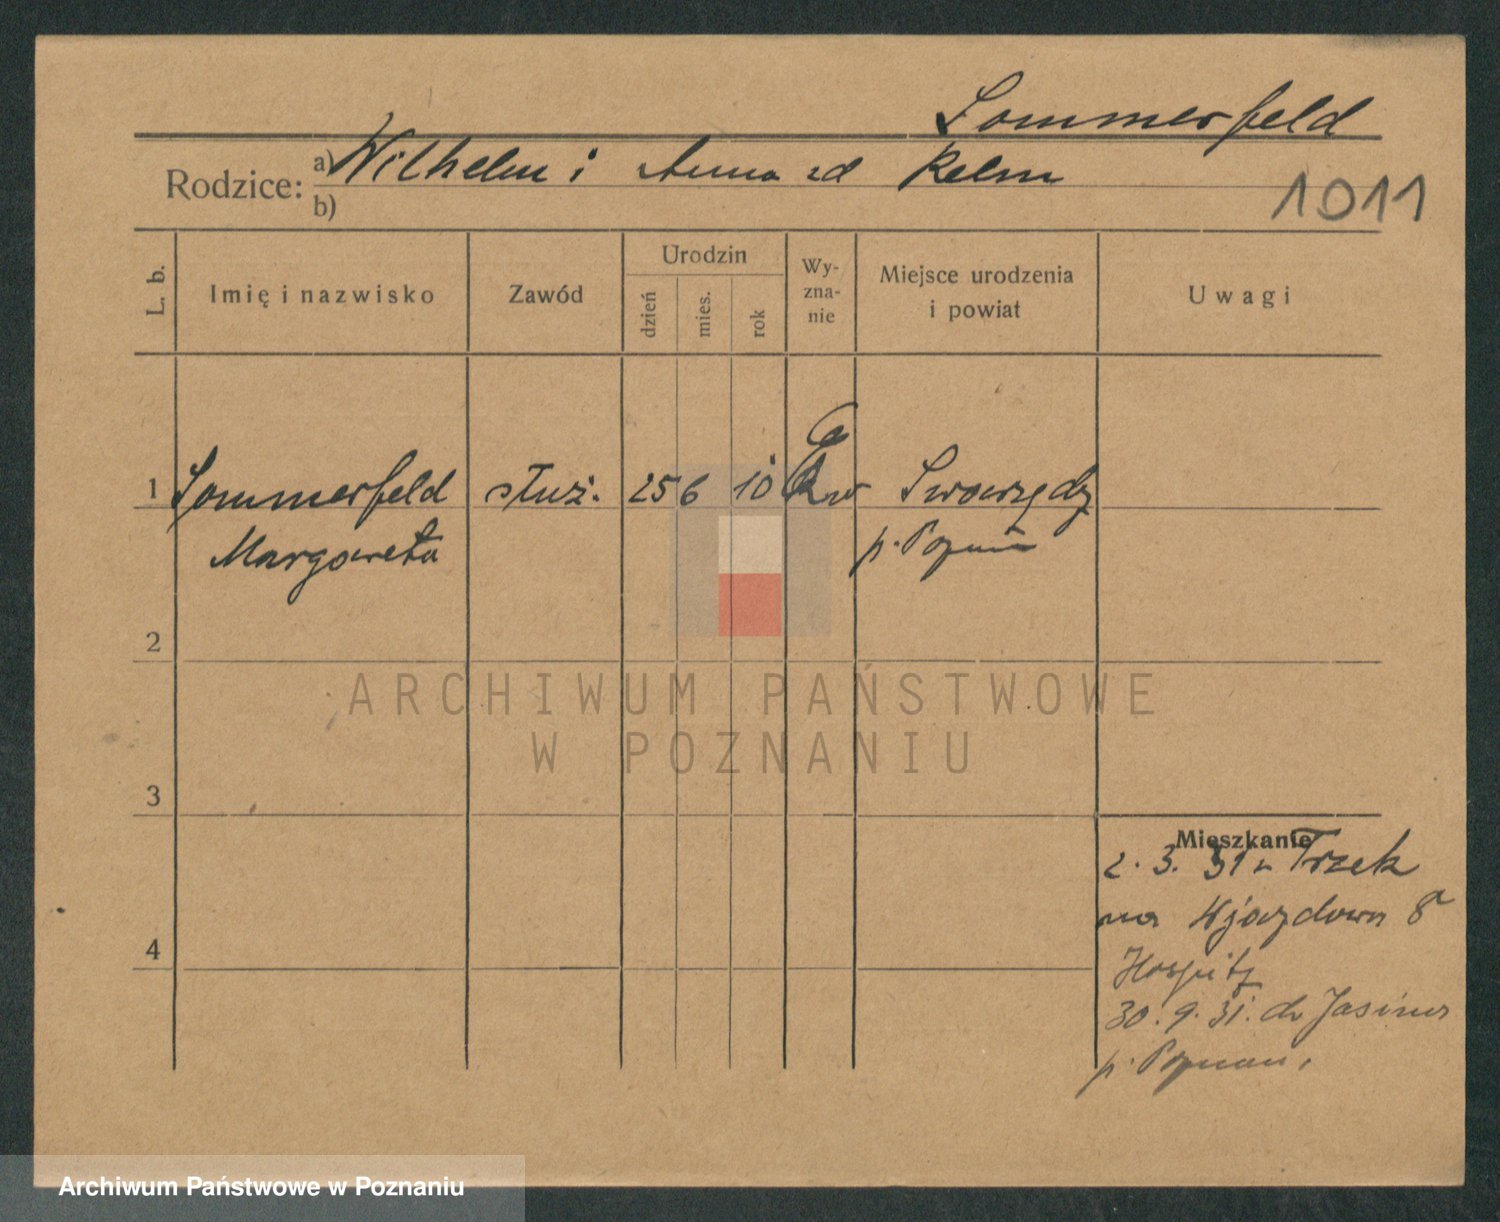 Sommerfeld
Rodzice:
a) Wilhelm i Anna zd Relm
b)
1011
L. b.
Imię i nazwisko
Zawód
Urodzin
dzień
mies.
rok
Wy-
zna-
nie
Miejsce urodzenia
i powiat
Uwagi
1 Sommerfeld służ. 25 6 10 Ew Swarzędz
Margareta p. Poznań
2
3
4
ARCHIWUM PAŃSTWOWE
W POZNANIU
Mieszkanie
2. 3. 31 z Trzek
na Wjazdowa 8
Hospitz
30. 9. 31. do Jasina
p. Poznań.
Archiwum Państwowe w Poznaniu